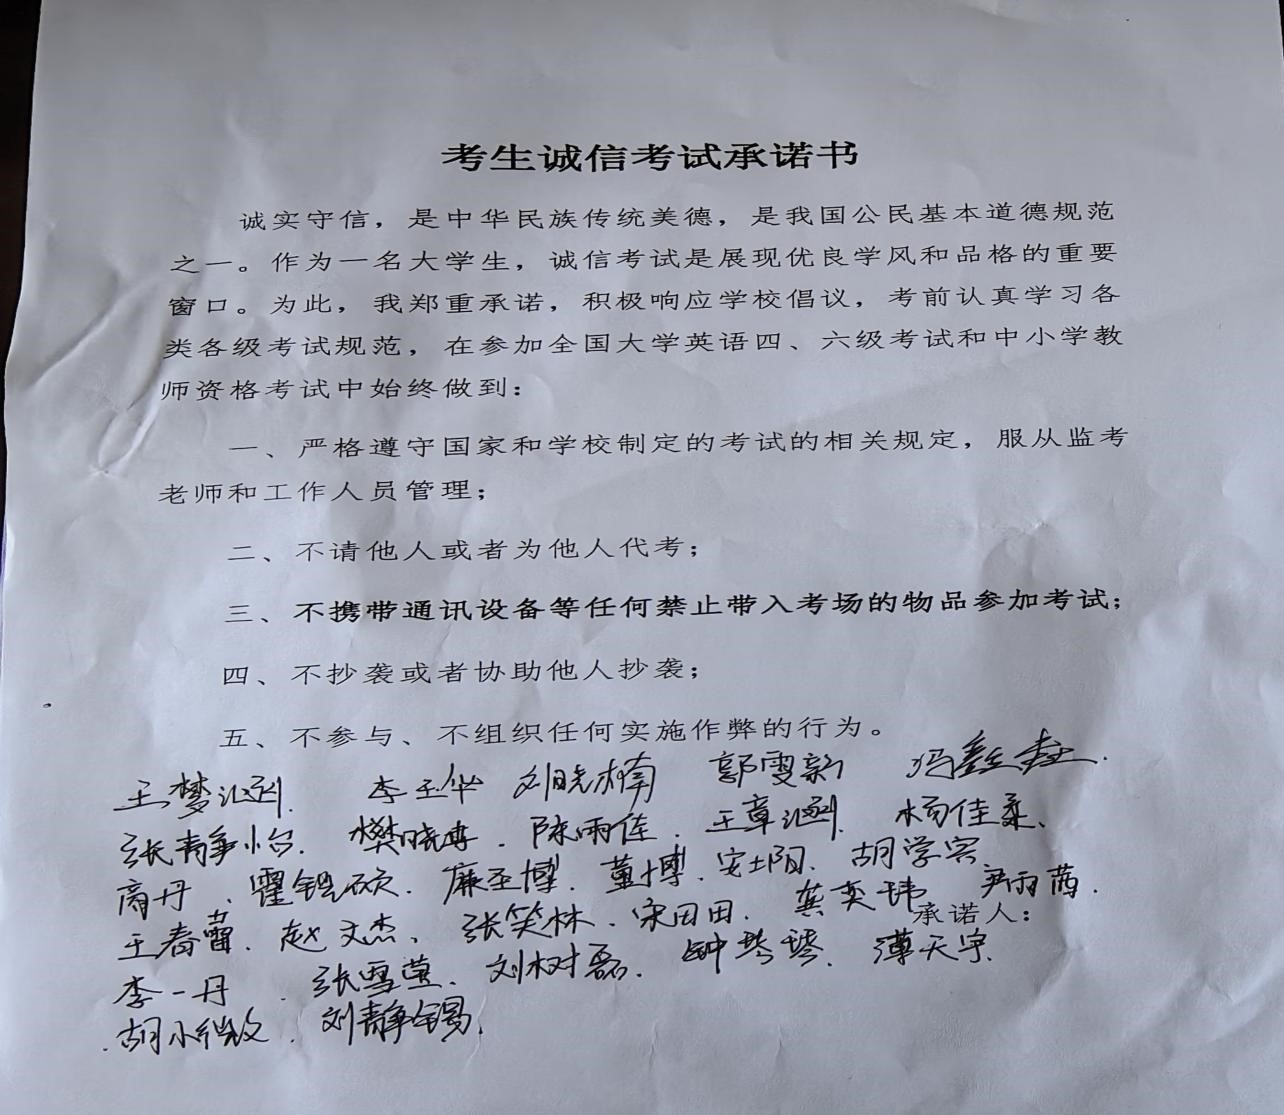 考生诚信考试承诺书
诚实守信，是中华民族传统美德，是我国公民基本道德规范
之一。作为一名大学生，诚信考试是展现优良学风和品格的重要
窗口。为此，我郑重承诺，积极响应学校倡议，考前认真学习各
类各级考试规范，在参加全国大学英语四、六级考试和中小学教
师资格考试中始终做到：
一、严格遵守国家和学校制定的考试的相关规定，服从监考
老师和工作人员管理；
二、不请他人或者为他人代考；
三、不携带通讯设备等任何禁止带入考场的物品参加考试；
四、不抄袭或者协助他人抄袭；
五、不参与、不组织任何实施作弊的行为。
王梦 李玉华 刘晓楠 郭雯新
张静怡 樊晓冉. 陈雨佳. 王章涵. 杨佳柔、
商丹、 霍锟硕. 廉圣博. 董博. 安士阳. 胡学宾
王春蕾. 赵文杰、 张笑林. 宋田田. 龚奕玮 尹雨茜.
承诺人：
李一丹. 张雪莹. 刘树磊. 钟琴琴. 薄天宇.
胡小微. 刘静